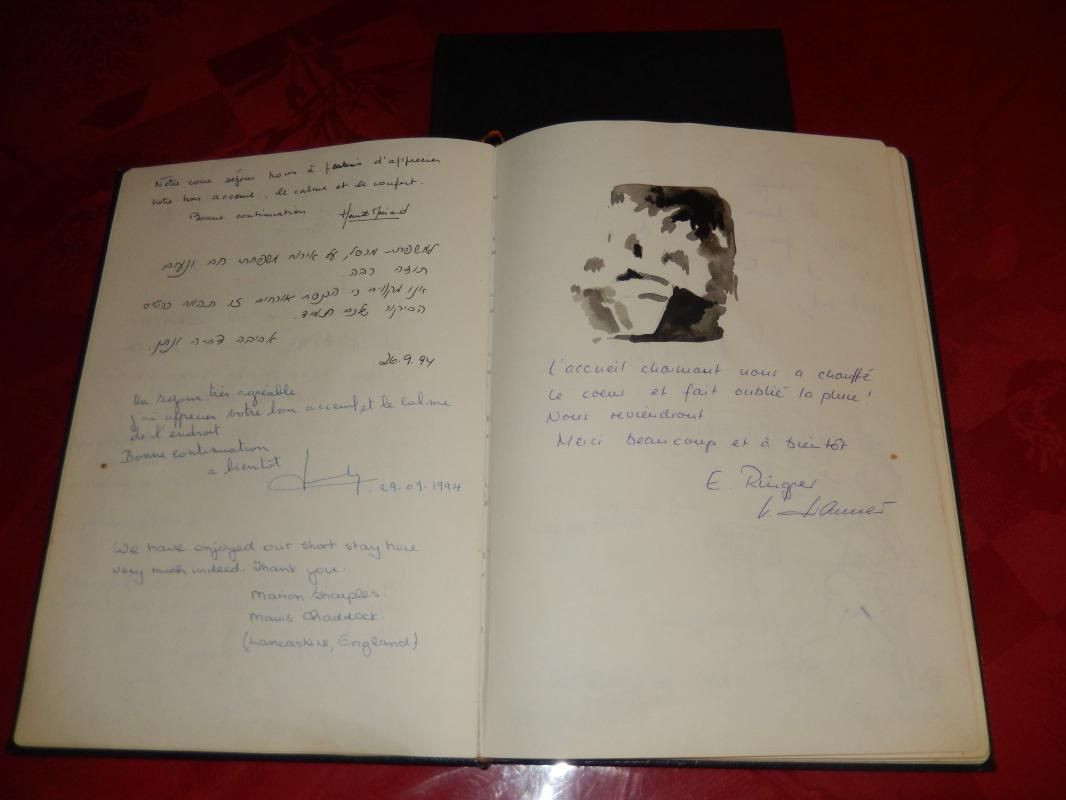 Notre court séjour nous à permis d'apprecier
votre bon accueil, le calme et le confort.
Bonne continuation
למשפחת מרסל, על אירוח משפחתי חם ונעים
תודה רבה.
אנו מקווים כי הכנסת אורחים זו תהווה
הביקור שלכם תמיד.
אביבה ונתן.
26.9.94
Un séjour très agréable
j'ai apprecier votre bon accueil et le calme
de l'endroit
Bonne continuation
a bientôt
29.09.1994
We have enjoyed our short stay here
very much indeed. Thank you.
Marion Sharples.
Mavis Chaddock.
(Lancashire, England)
L'accueil charmant nous a chauffé
le coeur et fait oublié la pluie!
Nous reviendront
Merci beaucoup et à bientôt
E. Ringer